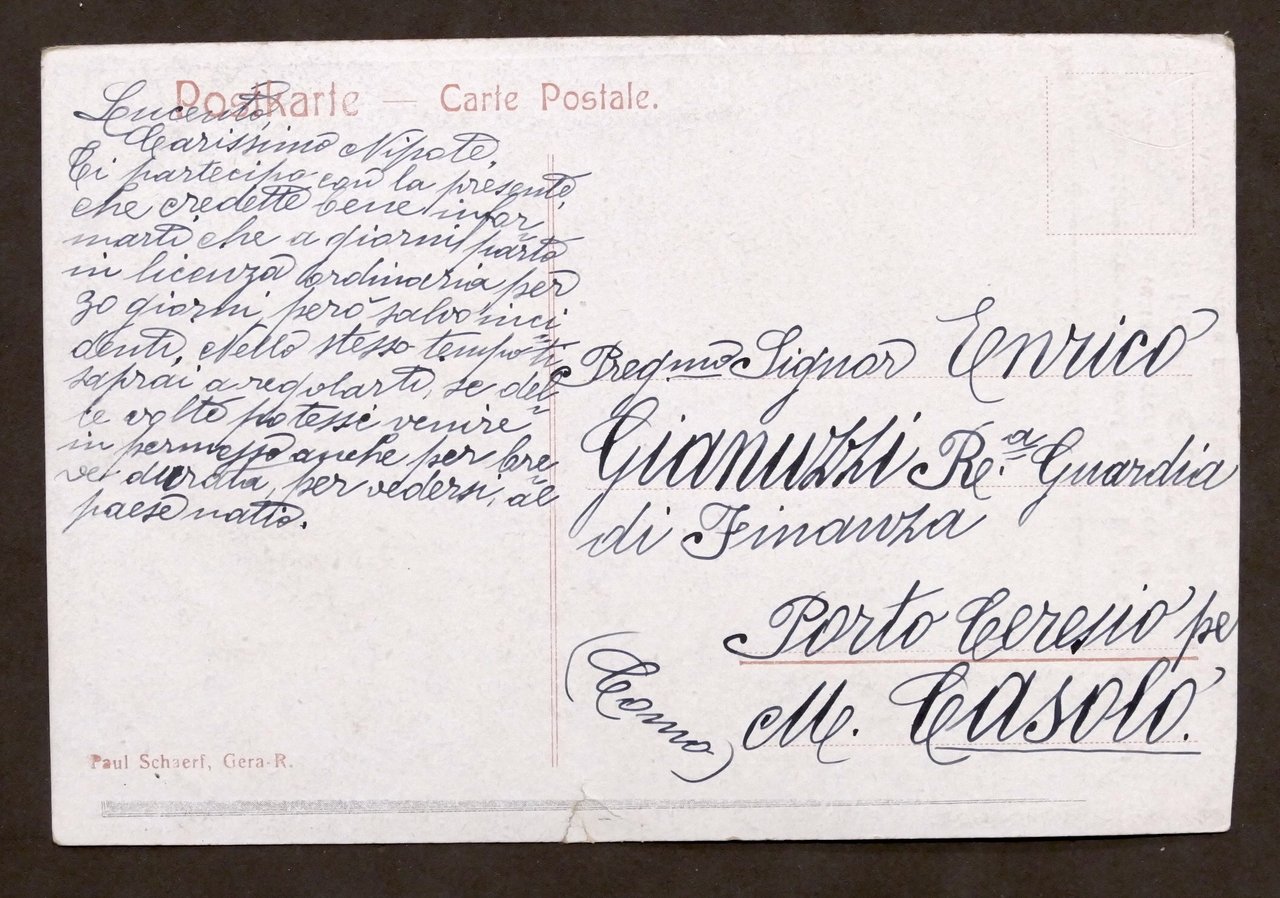 Postkarte — Carte Postale.
Lucento,
Carissimo Nipote,
Ti partecipo con la presente,
che credette bene infor=
marti che a giorni parto
in licenza ordinaria per
30 giorni, però salvo inci=
denti. Nello stesso tempo ti
saprai a regolarti, se del=
le volte potessi venire
in permesso anche per bre=
ve durata, per vedersi, al
paese natio.
Pregmo Signor Enrico
Gianuzzi Re.a Guardia
di Finanza
Porto Ceresio pe
M. Casolo.
(Como)
Paul Schaerf, Gera-R.